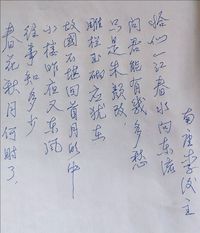 春花秋月何时了
往事知多少
小楼昨夜又东风
故国不堪回首月明中
雕栏玉砌应犹在
只是朱颜改
问君能有幾多愁
恰似一江春水向东流
南唐李后主